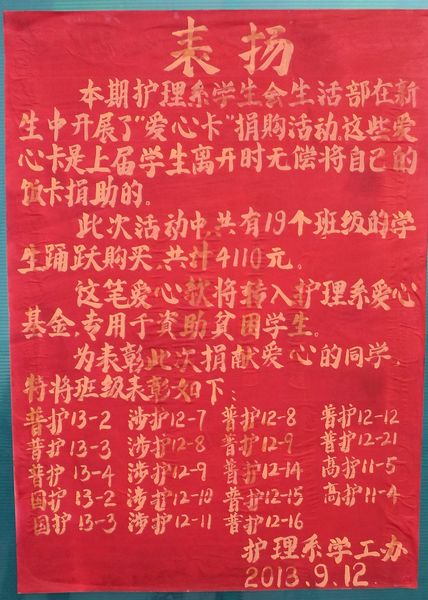 表扬
本期护理系学生会生活部在新
生中开展了“爱心卡”捐购活动。这些爱
心卡是上届学生离开时无偿将自己的
饭卡捐助的。
此次活动中,共有19个班级的学
生踊跃购买,共计4110元。
这笔爱心款将转入护理系爱心
基金,专用于资助贫困学生。
为表彰此次捐献爱心的同学,
特将班级表彰如下:
普护13-2 涉护12-7 普护12-8 普护12-12
普护13-3 涉护12-8 普护12-9 普护12-21
普护13-4 涉护12-9 普护12-14 高护11-5
国护13-2 涉护12-10 普护12-15 高护11-4
国护13-3 涉护12-11 普护12-16
护理系学工办
2013.9.12